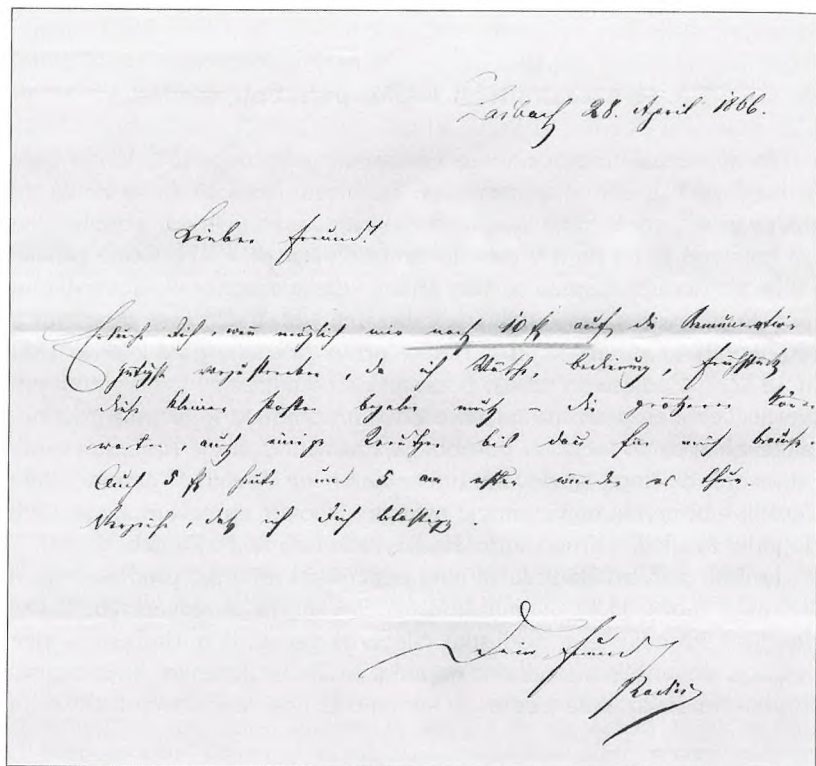 Laibach 28. April 1866.
Lieber Freund!
Ersuche Dich wenn möglich mir noch 10 fl auf die Remuneration
gefälligst vorzustrecken, da ich Wäsche, Bedienung, Frühstück
diese kleine Posten begleichen muß – die größeren
warten auch einige bis das für mich
Auch 5 fl heute und 5 am ersten würden es thun
Verzeihe, daß ich Dich belästige
Dein Freund
Radics